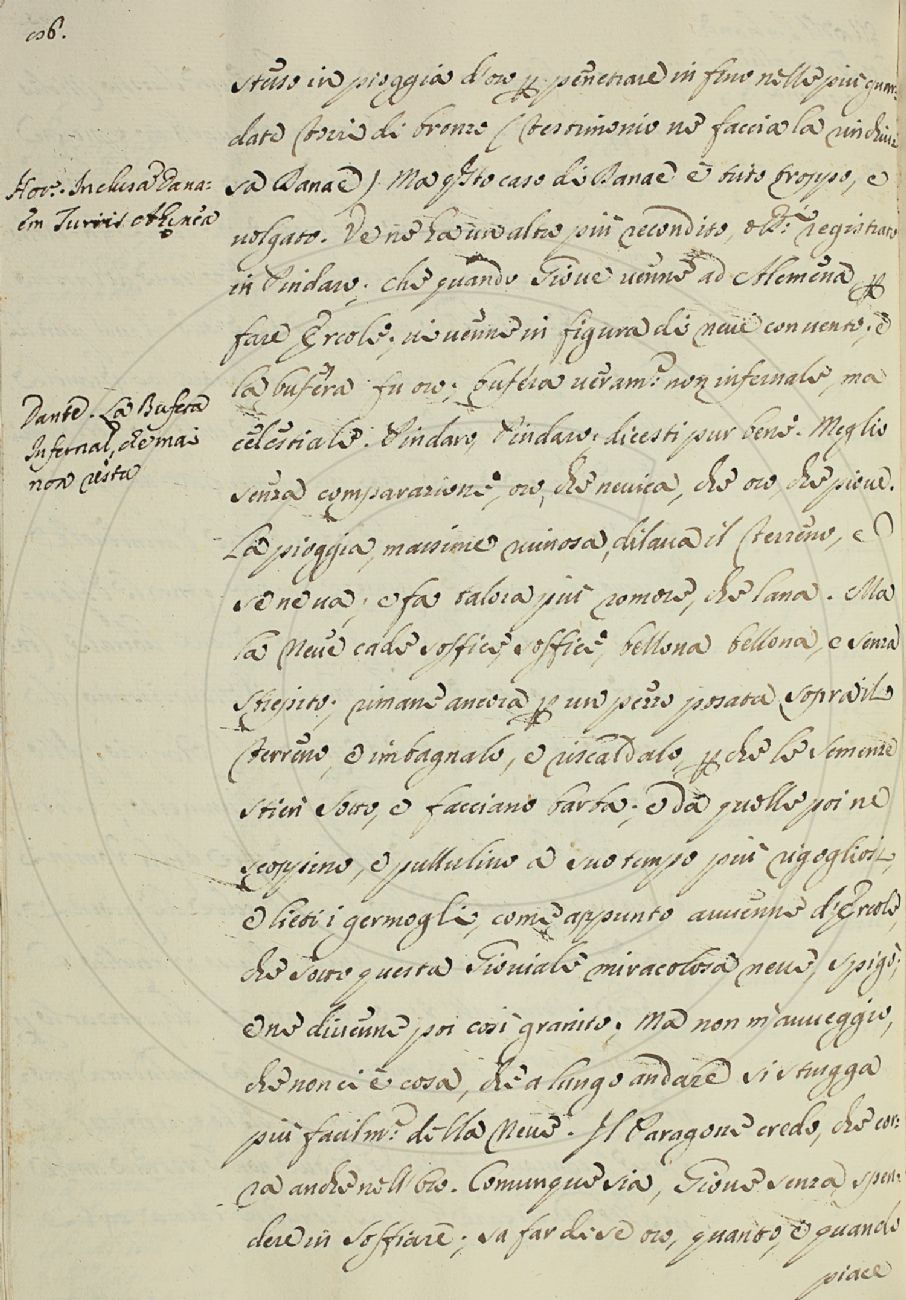 106.
stuso in pioggia d'oro p penetrare in fino nelle più guar=
date torri di bronzo ( testimonio ne faccia la rinchiu=
sa Danae ) . Ma q.sto caso di Danae è tutto troppo, e
Hor.° Inclusa Dana=
em Turris Ahenea
volgato. Ve n'ha un'altro più recondito, registrato
in Pindaro; che quando Giove venne ad Alcmena p
fare Ercole, vi venne in figura di neve con vento; e
la bufera fu oro; bufera veram.te non infernale, ma
Dante. La Bufera
Infernal, che mai
non resta
celestiale. Pindaro, Pindaro, dicesti pur bene. Meglio
senza comparazione, oro, che nevica, che oro, che piove.
La pioggia, massime ruinosa, dilava il terreno, e
se ne va; e fa talora più romore, che lana. Ma
la Neve cade soffice, soffice, bellona bellona, e senza
strepito; rimane ancora p un pezzo posata sopra il
terreno, e imbagnalo, e riscaldalo, p che le semenze
stien sotto, e facciano barba; e da quelle poi ne
scoppino, e pullulino a suo tempo più rigogliosi,
e lieti i germogli, come appunto avvenne d'Ercole,
che sotto questa Gioviale miracolosa neve, spigò;
e ne divenne poi così granito. Ma non m'avveggio,
che non ci è cosa, che a lungo andare si strugga
più facilm.te della Neve. Il Paragone credo, che cor=
ra anche nell'oro. Comunque sia, Giove senza spen=
dere in soffiare; sa far di se oro, quanto, e quando
piace